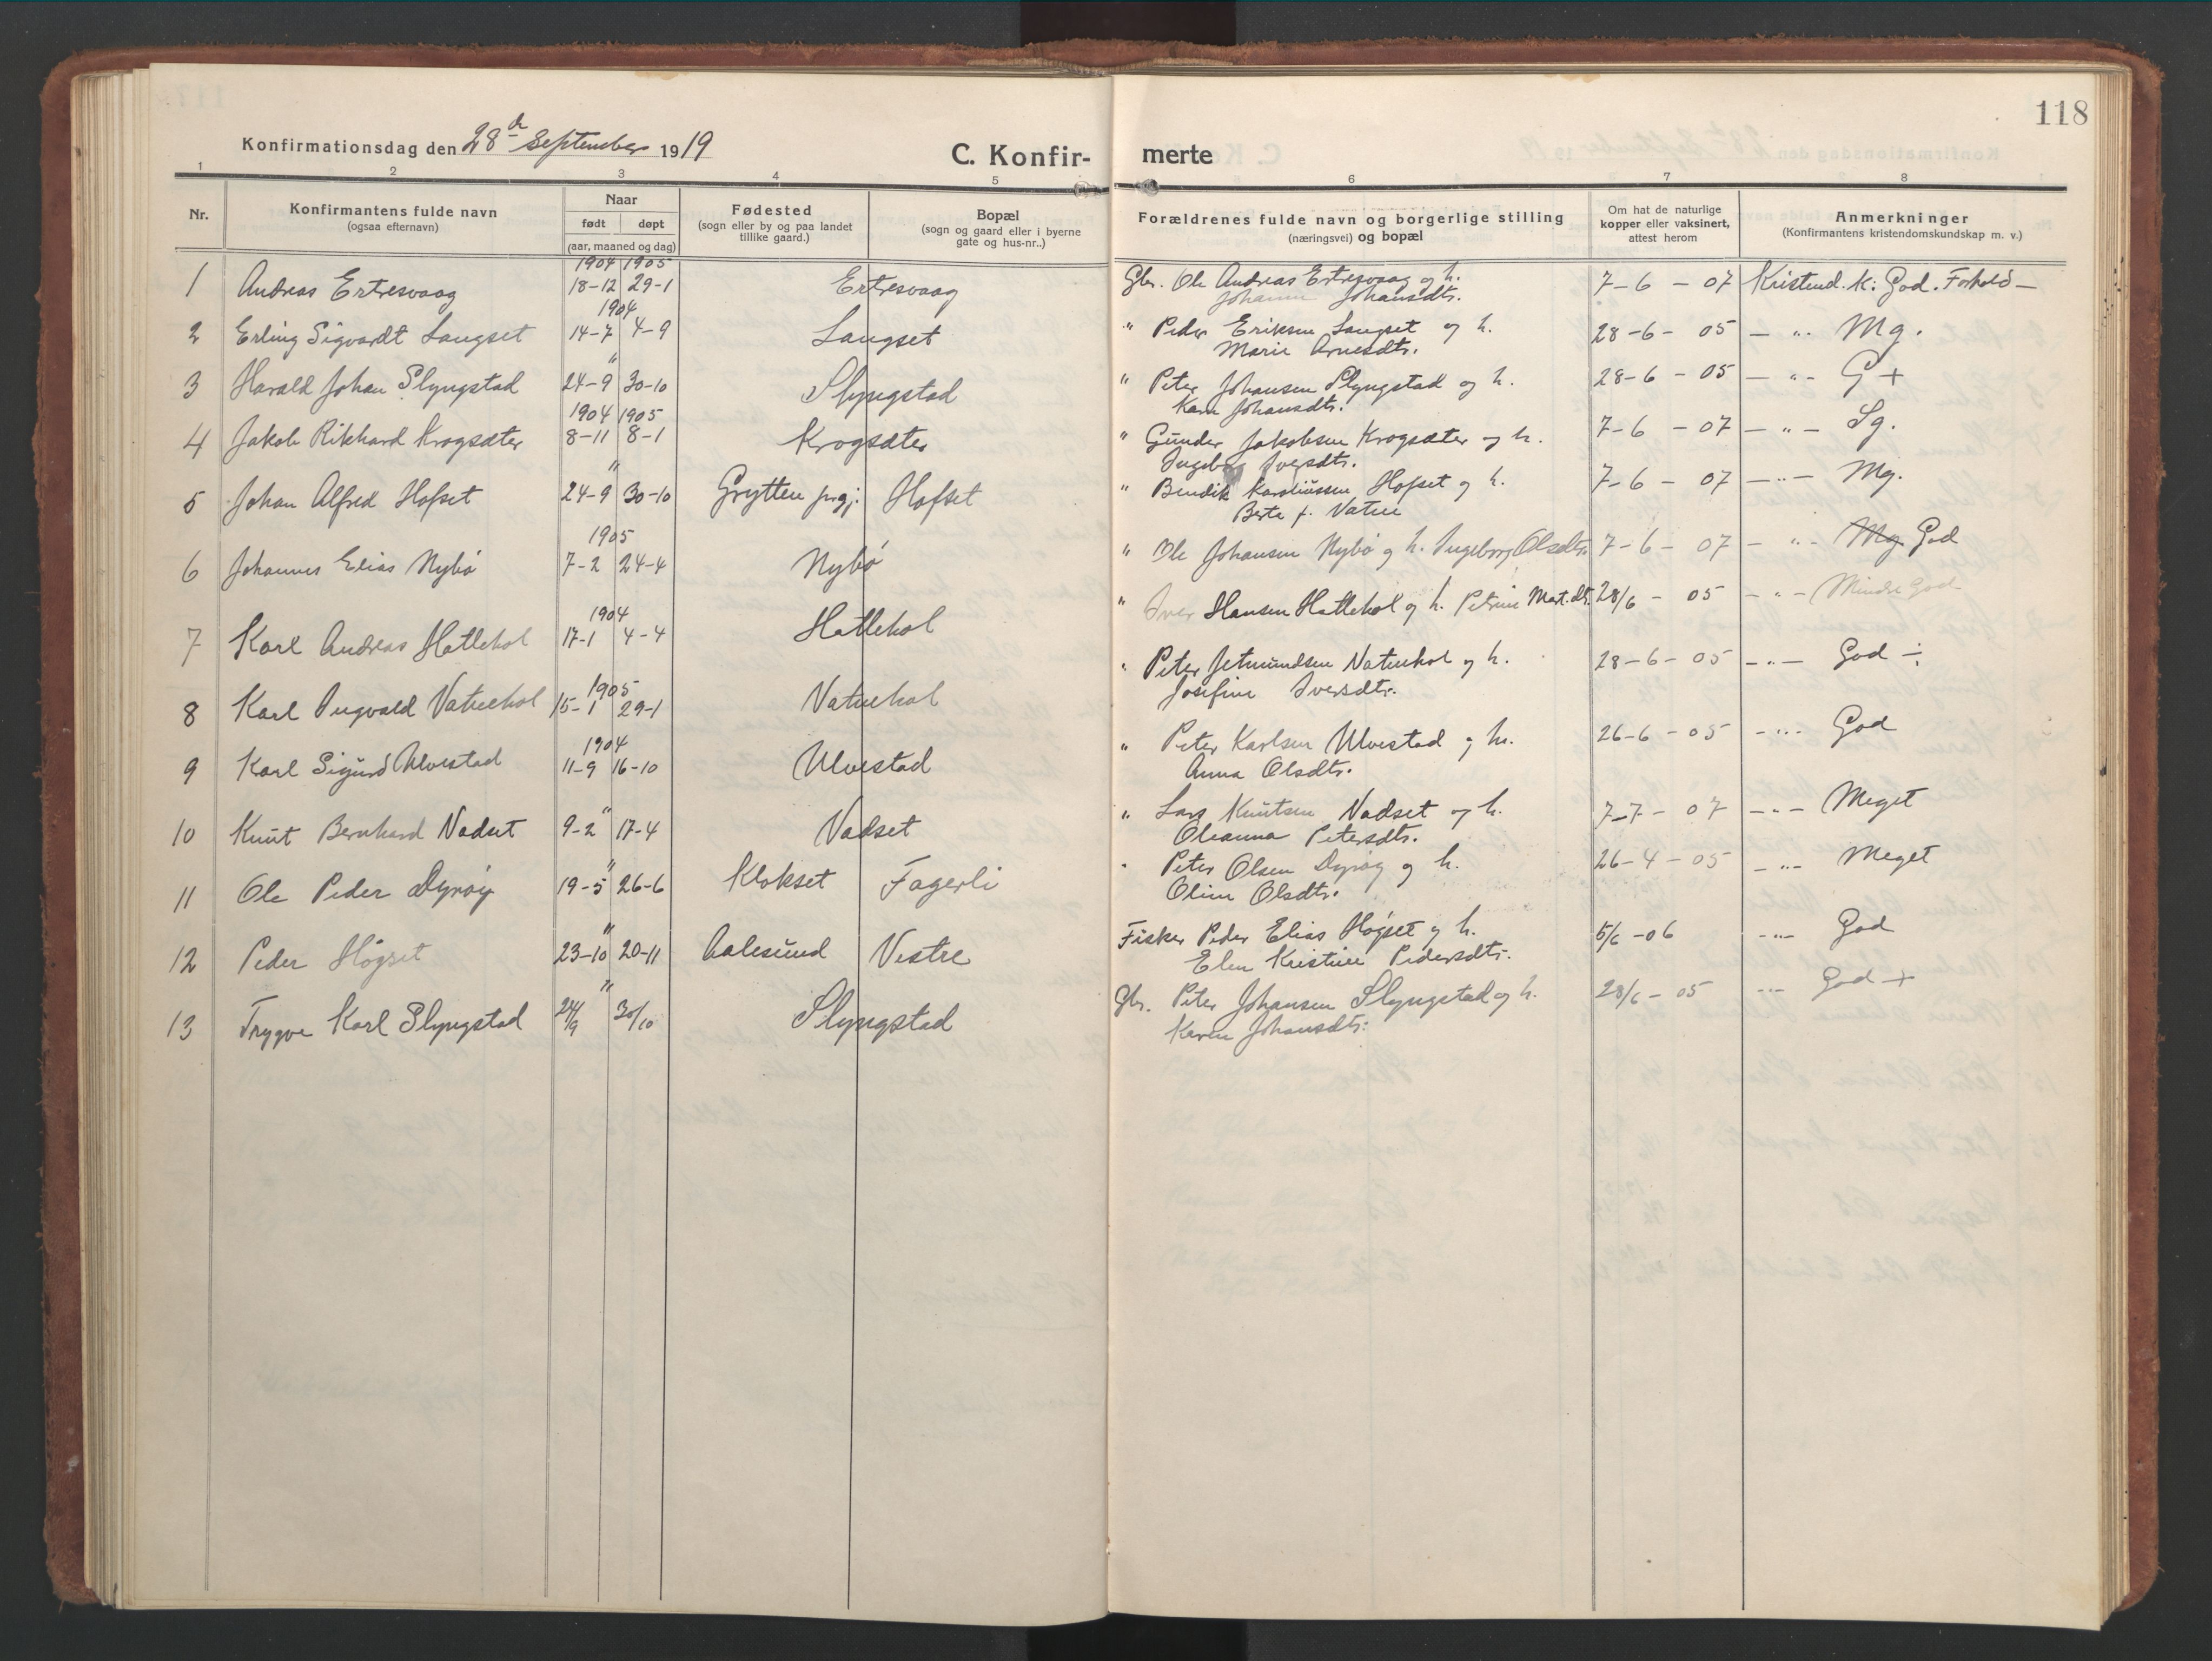 118
Konfirmationsdag den 28de September 1919
C. Konfir- merte
1 2 3 4 5 6 7 8
Nr.
Konfirmantens fulde navn
(ogsaa efternavn)
Naar
født døpt
(aar, maaned og dag)
Fødested
(sogn eller by og paa landet
tillike gaard.)
Bopæl
(sogn og gaard eller i byerne
gate og hus-nr..)
Forældrenes fulde navn og borgerlige stilling
(næringsvei) og bopæl
Om hat de naturlige
kopper eller vaksinert,
attest herom
Anmerkninger
(Konfirmantens kristendomskundskap m. v.)
1904 1905
1 Andreas Ertresvaag 18-12 29-1 Ertresvaag Gbr. Ole Andreas Ertresvaag og h. 7-6-07 Kristend. K: God. Forhold —
Johanne Johansdtr.
1904
2 Erling Sigvardt Langset 14-7 4-9 Langset " Peder Eriksen Langset og h. 28-6-05 — " - Mg.
Marie Arnesdtr.
"
3 Harald Johan Slyngstad 24-9 30-10 Slyngstad " Peter Johansen Slyngstad og h. 28-6-05 — " - G +
Karn Johansdtr.
1904 1905
4 Jakob Rikhard Krogsæter 8-11 8-1 Krogsæter " Gunder Jakobsen Krogsæter og h. 7-6-07 — " — Sg.
Ingeborg Iversdtr.
"
5 Johan Alfred Hofset 24-9 30-10 Grytten prgj. Hofset " Bendik Karoliussen Hofset og h. 7-6-07 — " — Mg.
Berte f. Vatne
1905
6 Johannes Elias Nybø 7-2 24-4 Nybø " Ole Johansen Nybø og h. Ingeborg Olsdtr. 7-6-07 - " - Mg. God
1904
7 Karl Andreas Hatlehol 17-1 4-4 Hatlehol " Iver Hansen Hatlehol og h. Petrine Mart.dt. 28/6-05 - " - Mindre God
1905
8 Karl Ingvald Vatnehol 15-1 29-1 Vatnehol " Peter Jetmundsen Vatnehol og h. 28-6-05 - " - God ÷
Josefine Iversdtr.
1904
9 Karl Sigurd Ulvestad 11-9 16-10 Ulvestad " Peter Karlsen Ulvestad og h. 26-6-05 - " - God
Anna Olsdtr.
"
10 Knut Bernhard Vadset 9-2 17-4 Vadset " Lars Knutsen Vadset og h. 7-7-07 - " - Meget
Oleanna Petersdtr.
"
11 Ole Peder Dyrøy 19-5 26-6 Klokset Fagerli " Peter Olsen Dyrøy og h. 26-4-05 - " - Meget
Oline Olsdtr.
"
12 Peder Høgset 23-10 20-11 Aalesund Vestre Fisker Peder Elias Høgset og h. 5/6-06 - " - God
Elen Kristine Pedersdtr.
"
13 Trygve Karl Slyngstad 24/9 30/10 Slyngstad Gbr. Peter Johansen Slyngstad og h. 28/6-05 - " - God +
Karen Johansdtr.